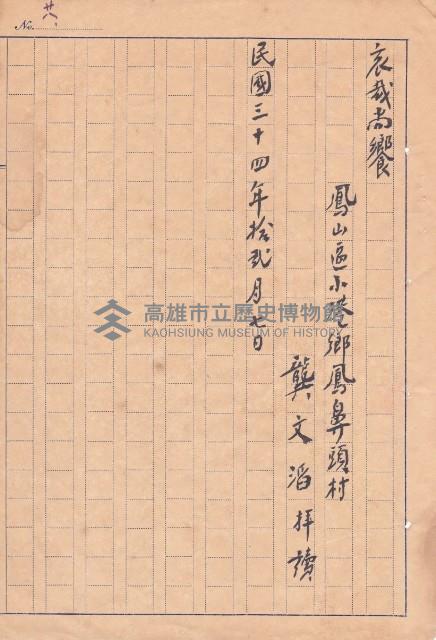 No. 廿八
哀哉尚饗
鳳山區小港鄉鳳鼻頭村
龔文滔拝讀
民國三十四年拾貳月七日
高雄市立歷史博物館
KAOHSIUNG MUSEUM OF HISTORY